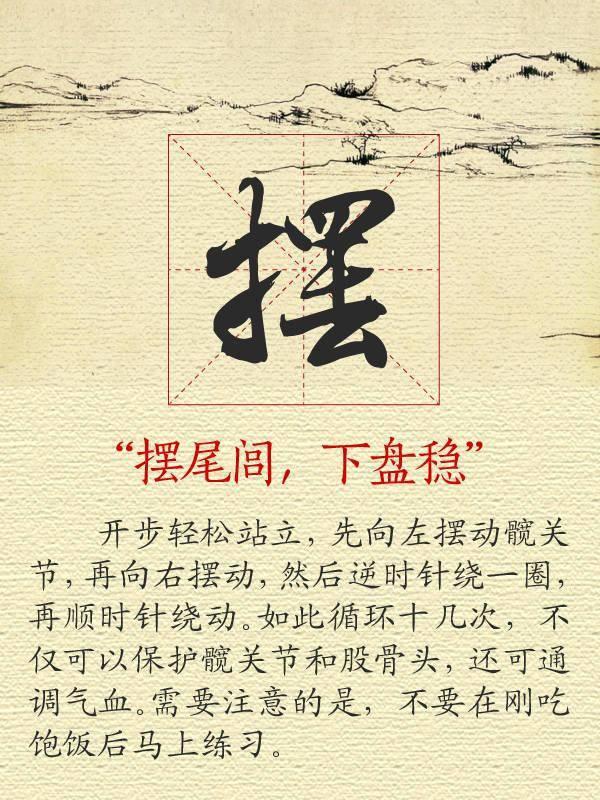 摆
“摆尾闾，下盘稳”
开步轻松站立，先向左摆动髋关
节，再向右摆动，然后逆时针绕一圈，
再顺时针绕动。如此循环十几次，不
仅可以保护髋关节和股骨头，还可通
调气血。需要注意的是，不要在刚吃
饱饭后马上练习。